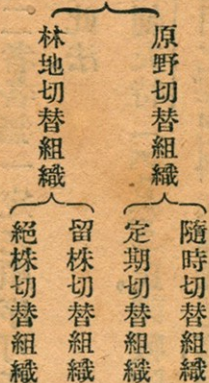 原野切替組織
隨時切替組織
定期切替組織
林地切替組織
留株切替組織
絕株切替組織